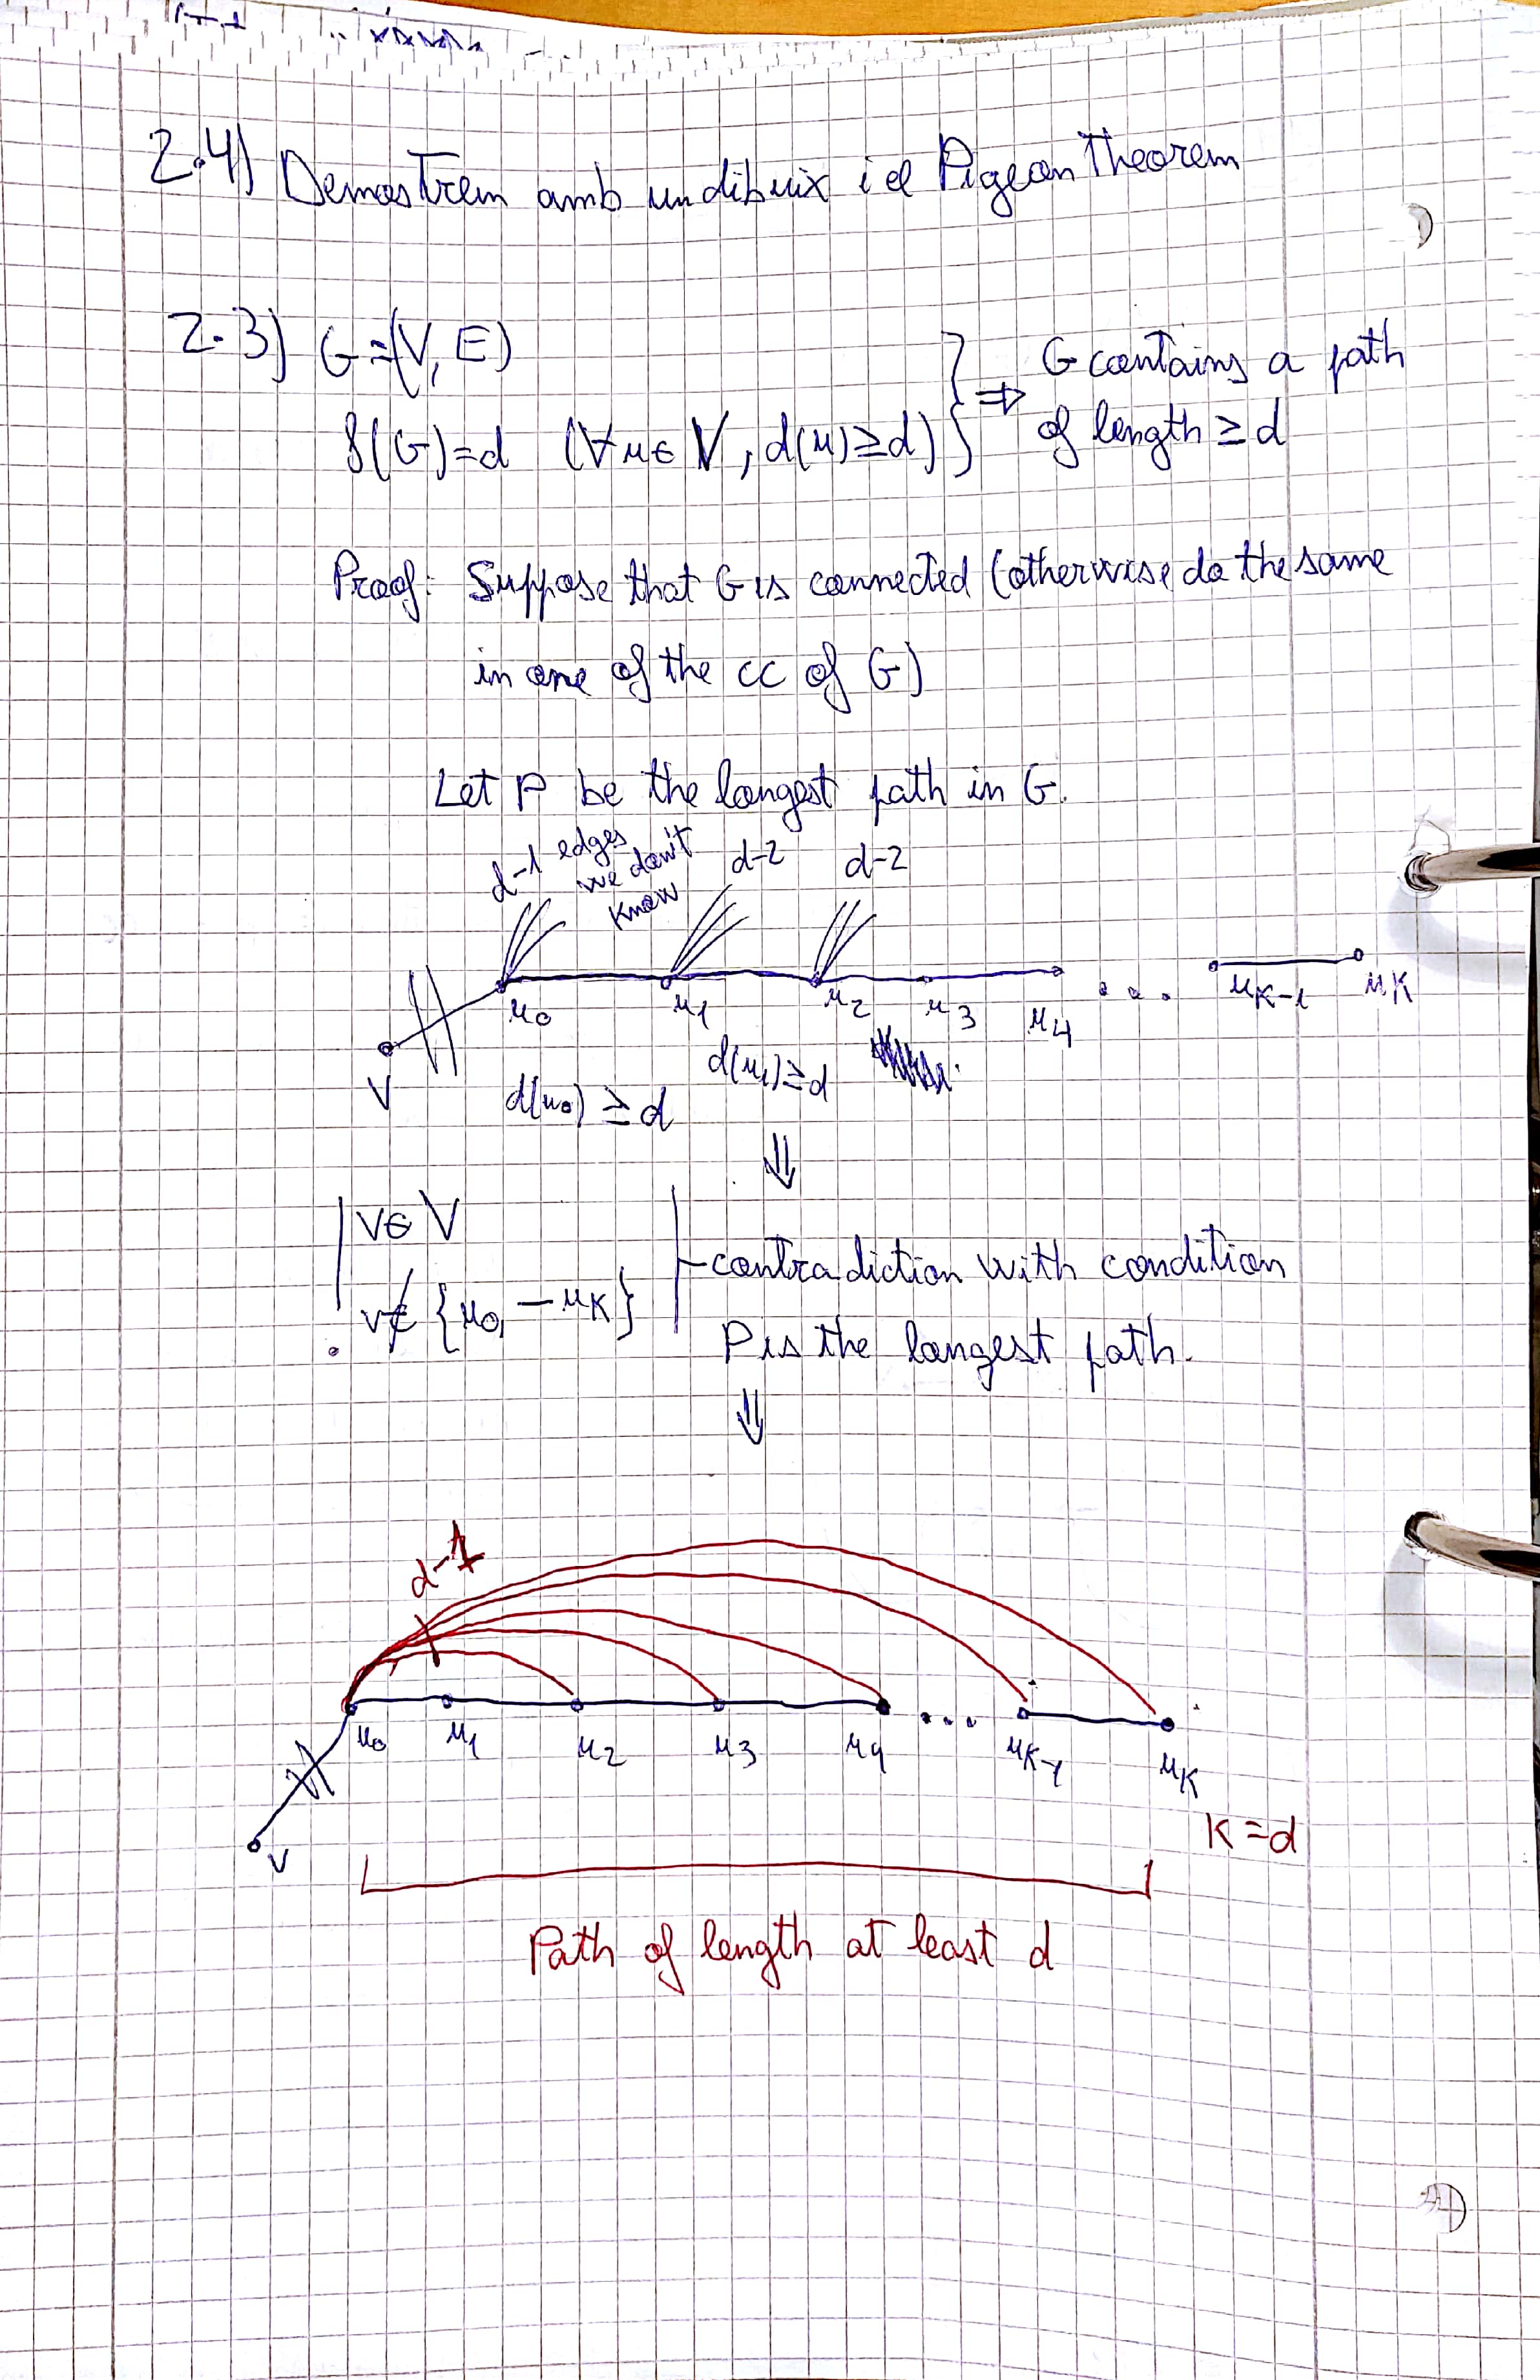 2.4) Demostrem amb un dibuix i el Pigeon Theorem
2.3) G=(V, E)
δ(G)=d (∀u∈V, d(u)≥d) } ⇒ G contains a path
of length ≥ d
Proof: Suppose that G is connected (otherwise do the same
in one of the cc of G)
Let P be the longest path in G.
d-1 edges we don't know d-2 d-2
u0 u1 u2 u3 u4 ... uK-1 uK
v
d(u0) ≥ d d(u1) ≥ d
⇓
v∈V
v∉{u0, — uK}
contradiction with condition
P is the longest path.
⇓
d-1
u0 u1 u2 u3 u4 ... uK-1 uK
v
K=d
Path of length at least d